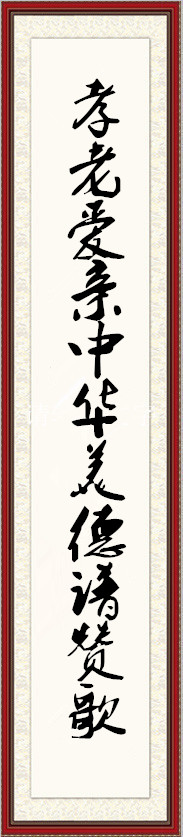 孝老爱亲中华美德谱赞歌